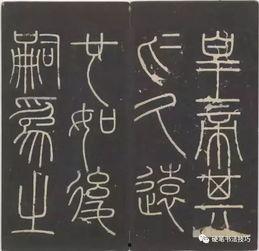 皇帝其
於久遠
也如後
嗣為之
硬笔书法技巧